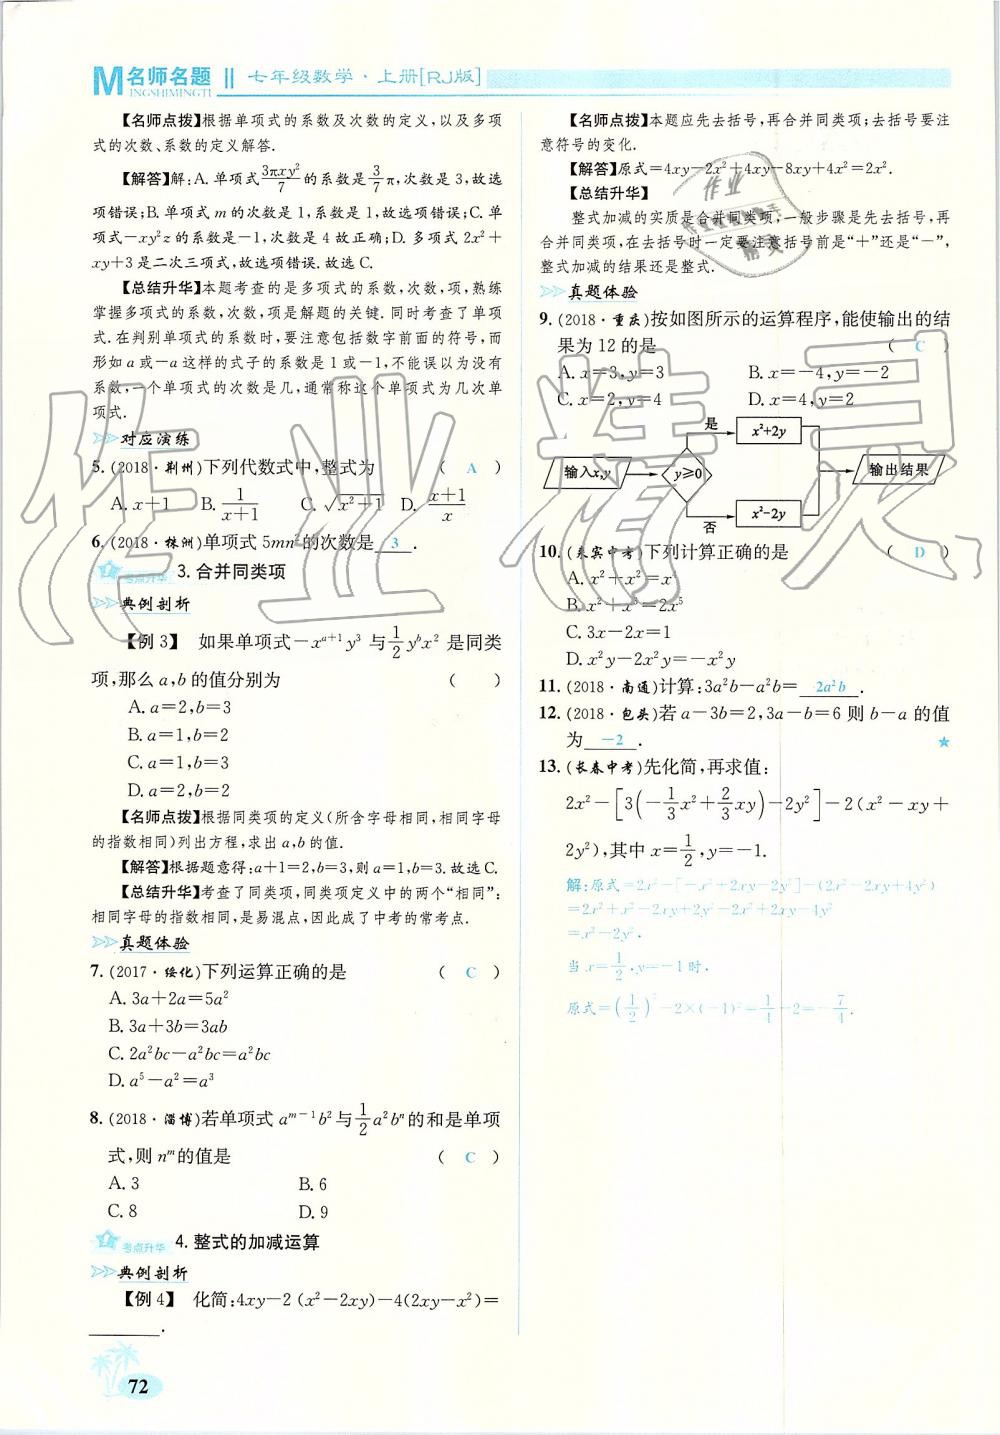 M名师名题 ‖ 七年级数学·上册[RJ版]
INGSHIMINGTI
【名师点拨】根据单项式的系数及次数的定义,以及多项
式的次数、系数的定义解答.
【解答】解:A.单项式3πxy²/7的系数是3/7π,次数是3,故选
项错误;B.单项式m的次数是1,系数是1,故选项错误;C.单
项式-xy²z的系数是-1,次数是4故正确;D.多项式2x²+
xy+3是二次三项式,故选项错误.故选C.
【总结升华】本题考查的是多项式的系数,次数,项,熟练
掌握多项式的系数,次数,项是解题的关键.同时考查了单项
式.在判别单项式的系数时,要注意包括数字前面的符号,而
形如a或-a这样的式子的系数是1或-1,不能误以为没有
系数,一个单项式的次数是几,通常称这个单项式为几次单
项式.
对应演练
5.(2018·荆州)下列代数式中,整式为 ( A )
A.x+1 B.1/(x+1) C.√(x²+1) D.(x+1)/x
6.(2018·株洲)单项式5mn²的次数是 3 .
考点升华 3.合并同类项
典例剖析
【例3】 如果单项式-xᵃ⁺¹y³与1/2yᵇx²是同类
项,那么a,b的值分别为 ( )
A.a=2,b=3
B.a=1,b=2
C.a=1,b=3
D.a=2,b=2
【名师点拨】根据同类项的定义(所含字母相同,相同字母
的指数相同)列出方程,求出a,b的值.
【解答】根据题意得:a+1=2,b=3,则a=1,b=3.故选C.
【总结升华】考查了同类项,同类项定义中的两个“相同”:
相同字母的指数相同,是易混点,因此成了中考的常考点.
真题体验
7.(2017·绥化)下列运算正确的是 ( C )
A.3a+2a=5a²
B.3a+3b=3ab
C.2a²bc-a²bc=a²bc
D.a⁵-a²=a³
8.(2018·淄博)若单项式aᵐ⁻¹b²与1/2a²bⁿ的和是单项
式,则nᵐ的值是 ( C )
A.3 B.6
C.8 D.9
考点升华 4.整式的加减运算
典例剖析
【例4】 化简:4xy-2(x²-2xy)-4(2xy-x²)=
.
72
【名师点拨】本题应先去括号,再合并同类项;去括号要注
意符号的变化.
【解答】原式=4xy-2x²+4xy-8xy+4x²=2x².
【总结升华】
整式加减的实质是合并同类项,一般步骤是先去括号,再
合并同类项,在去括号时一定要注意括号前是“+”还是“-”,
整式加减的结果还是整式.
真题体验
9.(2018·重庆)按如图所示的运算程序,能使输出的结
果为12的是 ( C )
A.x=3,y=3 B.x=-4,y=-2
C.x=2,y=4 D.x=4,y=2
是 x²+2y
输入x,y y≥0 输出结果
否 x²-2y
10.(来宾中考)下列计算正确的是 ( D )
A.x²+x²=x⁴
B.x²+x³=2x⁵
C.3x-2x=1
D.x²y-2x²y=-x²y
11.(2018·南通)计算:3a²b-a²b= 2a²b .
12.(2018·包头)若a-3b=2,3a-b=6则b-a的值
为 -2 . ★
13.(长春中考)先化简,再求值:
2x²-[3(-1/3x²+2/3xy)-2y²]-2(x²-xy+
2y²),其中x=1/2,y=-1.
解:原式=2x²-[-x²+2xy-2y²]-(2x²-2xy+4y²)
=2x²+x²-2xy+2y²-2x²+2xy-4y²
=x²-2y².
当x=1/2,y=-1时.
原式=(1/2)²-2×(-1)²=1/4-2=-7/4.
作业精灵